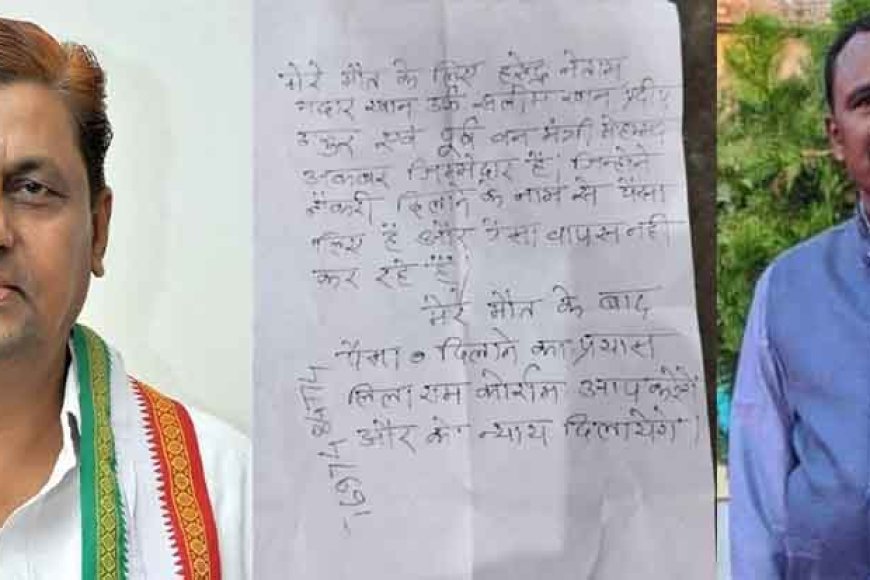 मेरे मौत के लिए हरेन्द्र नेताम
मदार खान उर्फ सलीम खान प्रदीप
ठाकुर एवं पूर्व वन मंत्री मोहम्मद
अकबर जिम्मेदार हैं। जिन्होंने
नौकरी दिलाने के नाम से पैसा
लिए हैं और पैसा वापस नहीं
कर रहे हैं।
मेरे मौत के बाद
पैसा दिलाने का प्रयास
लिला राम कोर्राम आप करेंगे
और न्याय दिलायेंगे।